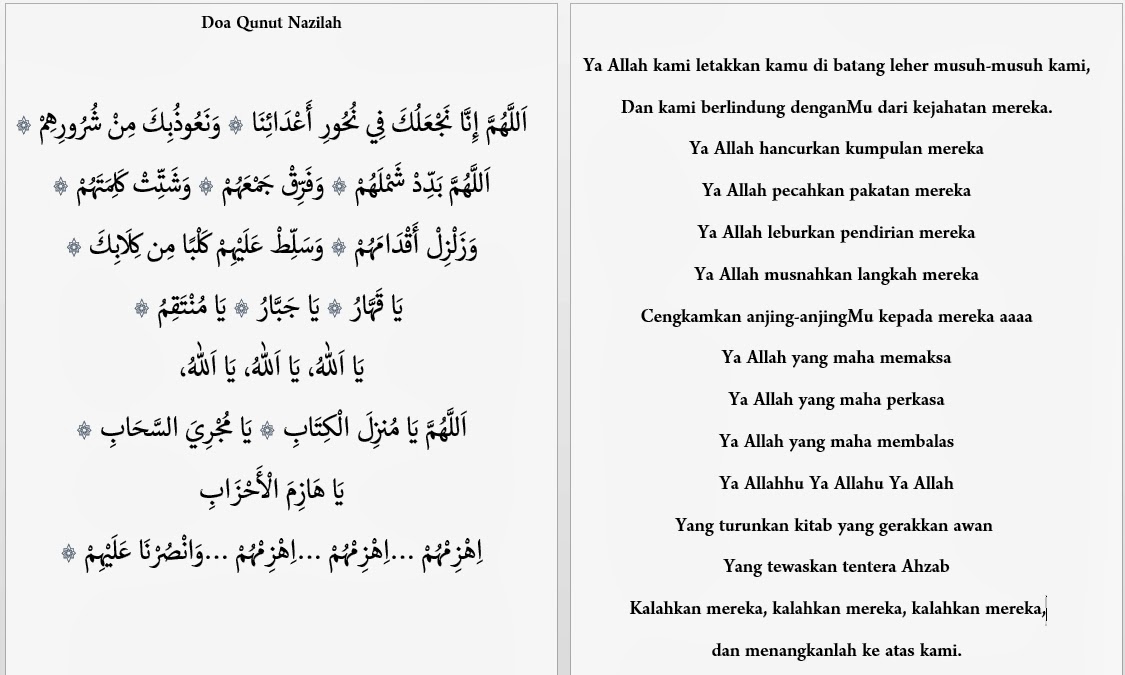 Doa Qunut Nazilah
اَللَّهُمَّ إِنَّا نَجْعَلُكَ فِي نُحُورِ أَعْدَائِنَا ۞ وَنَعُوذُبِكَ مِنْ شُرُورِهِمْ ۞
اَللَّهُمَّ بَدِّدْ شَمْلَهُمْ ۞ وَفَرِّقْ جَمْعَهُمْ ۞ وَشَتِّتْ كَلِمَتَهُمْ ۞
وَزَلْزِلْ أَقْدَامَهُمْ ۞ وَسَلِّطْ عَلَيْهِمْ كَلْبًا مِن كِلَابِكَ ۞
يَا قَهَّارُ ۞ يَا جَبَّارُ ۞ يَا مُنْتَقِمُ ۞
يَا اَللهُ، يَا اَللهُ، يَا اَللهُ،
اَللَّهُمَّ يَا مُنزِلَ الْكِتَابِ ۞ يَا مُجْرِيَ السَّحَابِ ۞
يَا هَازِمَ الْأَحْزَابِ
اِهْزِمْهُمْ ...اِهْزِمْهُمْ ...اِهْزِمْهُمْ ...وَانْصُرْنَا عَلَيْهِمْ ۞
Ya Allah kami letakkan kamu di batang leher musuh-musuh kami,
Dan kami berlindung denganMu dari kejahatan mereka.
Ya Allah hancurkan kumpulan mereka
Ya Allah pecahkan pakatan mereka
Ya Allah leburkan pendirian mereka
Ya Allah musnahkan langkah mereka
Cengkamkan anjing-anjingMu kepada mereka aaaa
Ya Allah yang maha memaksa
Ya Allah yang maha perkasa
Ya Allah yang maha membalas
Ya Allahhu Ya Allahu Ya Allah
Yang turunkan kitab yang gerakkan awan
Yang tewaskan tentera Ahzab
Kalahkan mereka, kalahkan mereka, kalahkan mereka,
dan menangkanlah ke atas kami.